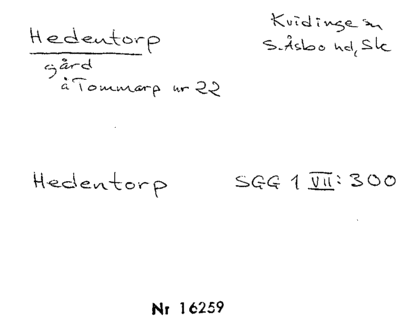 Hedentorp
Kvidinge sn
S. Åsbo hd, Sk
gård
å Tommarp nr 22
Hedentorp SGG 1 VII: 300
Nr 16259